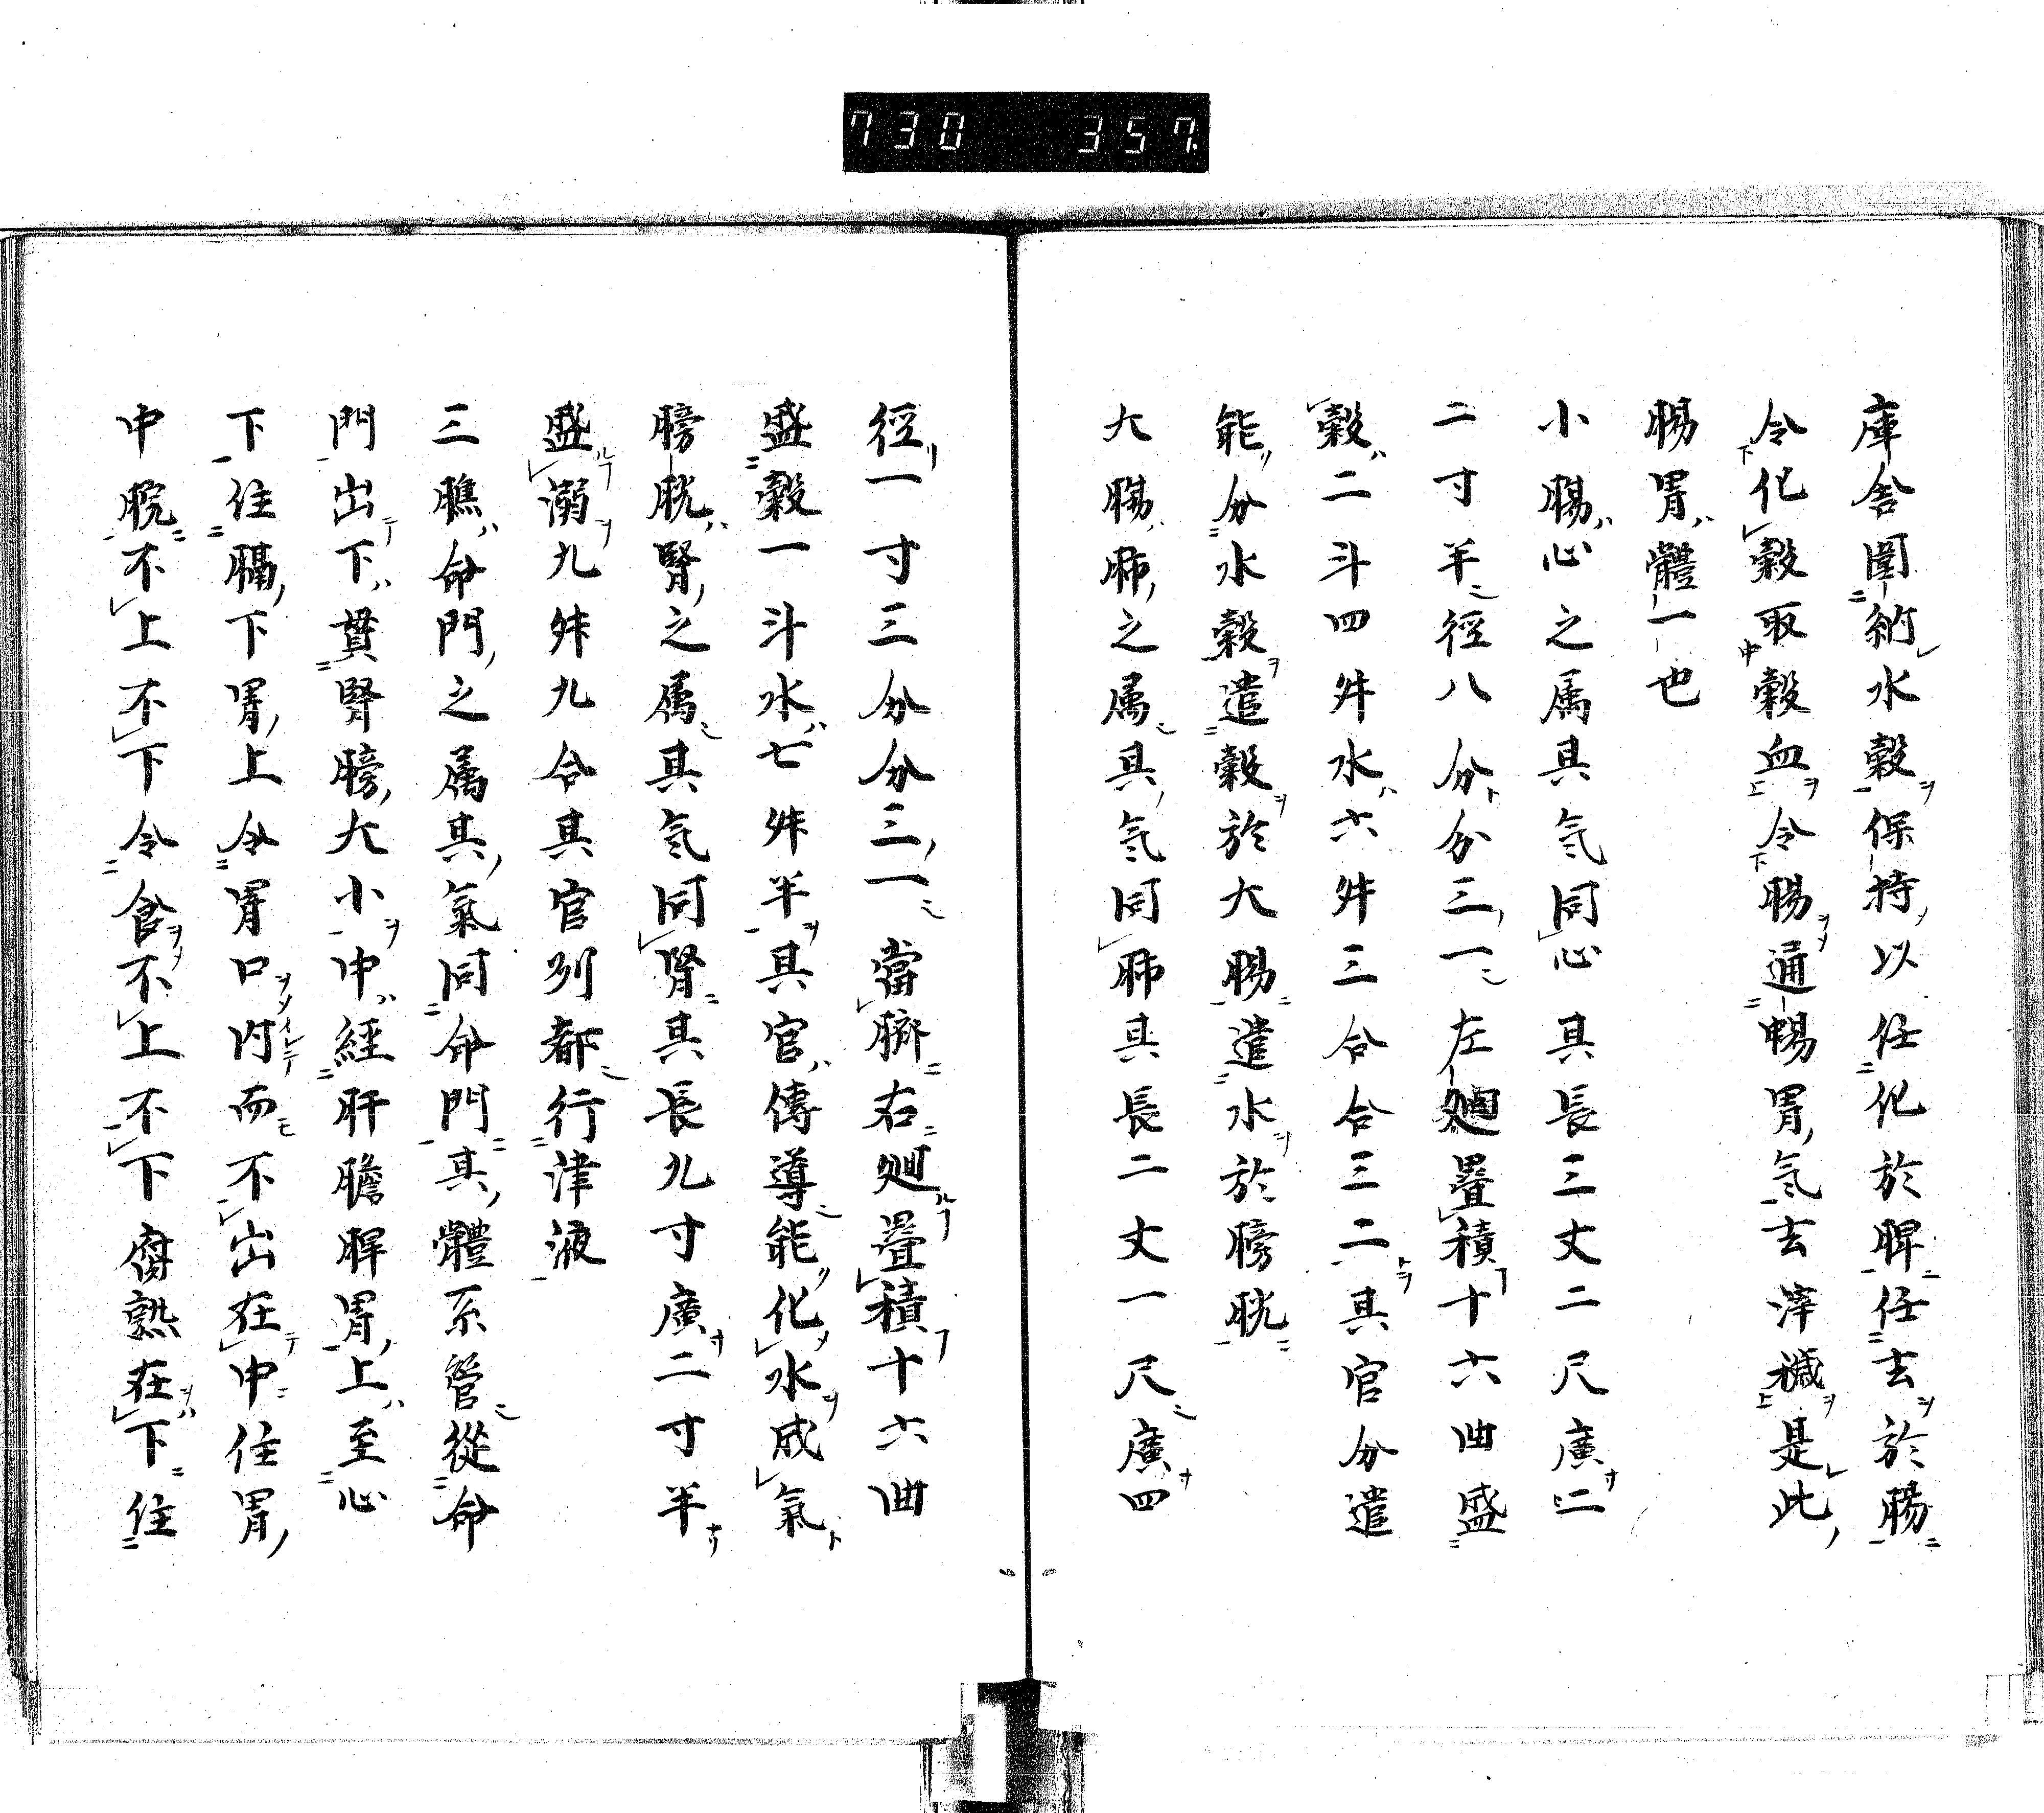 730 357.
庫舎圍納水穀保持以任化於脾任去於腸
令化穀取穀血令腸通暢胃氣去滓穢是此
腸胃體一也
小腸心之属具氣同心具長三丈二尺廣二
二寸半徑八分分三一左廻疊積十六曲盛
穀二斗四舛水六舛三合合三二其官分遣
能分水穀遣穀於大腸遣水於膀胱
大腸肺之属具氣同肺具長二丈一尺廣四
徑一寸三分分三一當臍右廻疊積十六曲
盛穀一斗水七舛半具官傳導能化水成氣
膀胱腎之属其氣同腎其長九寸廣二寸半
盛溺九舛九合其官列都行津液
三膲命門之属其氣同命門其體系管從命
門出下貫腎膀大小中經肝膽脾胃上至心
下住膈下胃上令胃口内而不出在中住胃
中脘不上不下令食不上不下腐熟在下住